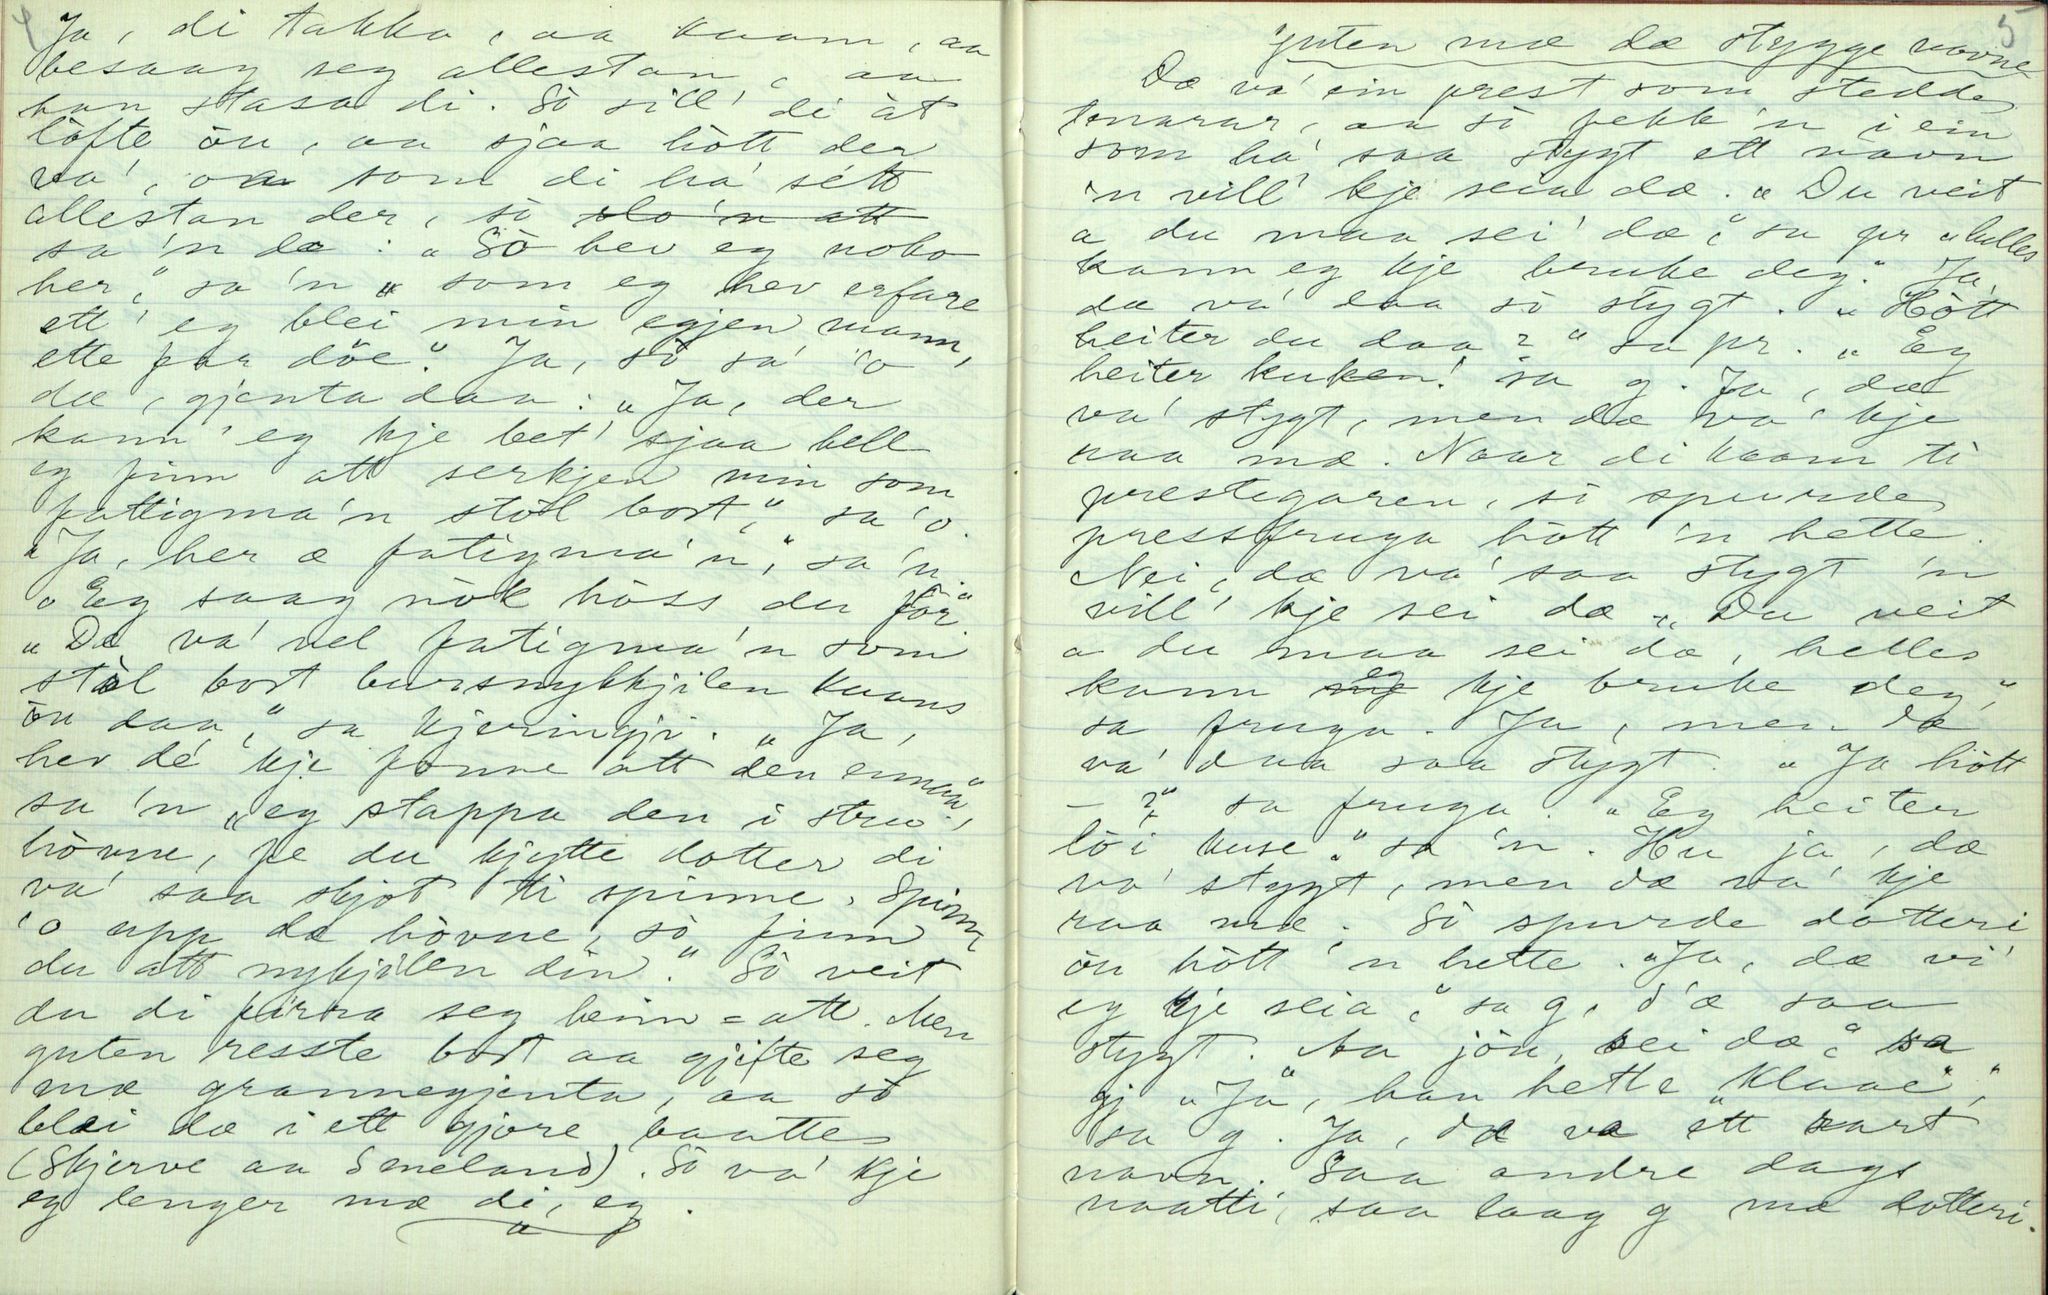 4
Ja, di takka, aa kaam, aa
besaag seg allestan, aa
han stasa di. Sò sill' di àt
lòfte òu, aa sjaa hòtt der
va', aa som di ha' sètt
allestan der, sò slo 'n att
sa 'n dæ: "Sò hev eg noko
her," sa 'n "som eg hev erfare
ett' eg blei min egjen mann,
ette far döe." Ja, sò sa' 'o
dæ, gjenta daa: "Ja, der
kann' eg kje bet' sjaa hell
eg finn att serkjen min som
fattigma'n stòl bort," sa 'o.
"Ja, her æ fatigma'n," sa 'n.
"Eg saag nòk hòss du fòr"
"Dæ va' vel fatigma'n som
stòl bort bursnykkjilen kuans
òu daa," sa kjeringji. "Ja,
hev dé 'kje fonne att den ennaa",
sa 'n, "eg stappa den i stru-
hòvne, fe du kjytte dotter di
va' saa skjot ti spinne. Spinn
'o upp dæ hòvne, sò finn
du att nykjilen din." Sò veit
du di fòrra seg heim = att. Men
guten resste bort aa gjifte seg
mæ grannegjenta, aa sò
blei dæ i ett gjore baatte
(Skjerve aa Smeland). Sò va' kje
eg lenger mæ di, eg.
5
Guten mæ dæ stygge navne
Dæ va' ein prest som stedde
tenarar, aa sò fekk 'n i ein
som ha' saa stygt ett navn
'n vill' kje seia dæ. "Du veit
a du maa sei' dæ," sa pr "helles
kann eg kje bruke deg." Ja,
dæ va' daa sò stygt. "Hòtt
heiter du daa?" sa pr. "Eg
heiter kuken! sa g. Ja, dæ
va' stygt, men dæ va' kje
raa mæ. Naar di kaam ti
prestegaren, sò spurde
pressfruga hòtt 'n hette.
Nei, dæ va' saa stygt 'n
vill' kje sei dæ. "Du veit
a du maa sei dæ, helles
kann eg kje bruke deg,"
sa fruga. Ja, men dæ
va' daa saa stygt. "Ja hòtt
– ?" sa fruga. "Eg heiter
lòi kuse." sa 'n. Hu ja, dæ
va' stygt, men dæ va' kje
raa mæ. Sò spurde dotteri
òu hòtt 'n hette. "Ja, dæ vi'
eg kje seia," sa g, d'æ saa
stygt. Aa jòu, sei dæ," sa
gj "Ja", han hette "Klaae",
sa g. Ja, dæ va ett rart
navn. Saa andre dags
naatti, saa laag g mæ dotteri.